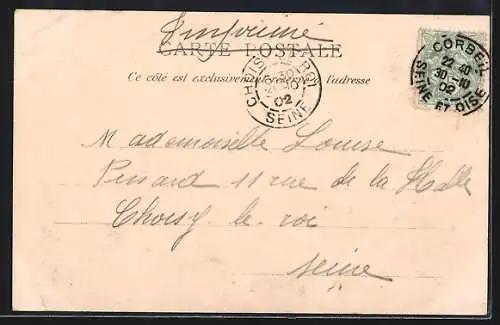 Imprimé
CARTE POSTALE
Ce côté est exclusivement réservé à l'adresse
CHOISY-LE-ROI
SEINE
02
CORBEIL
22 40
30 -10
02
SEINE ET OISE
Mademoiselle Louise
Pinard 11 rue de la Halle
Choisy-le-roi
Seine